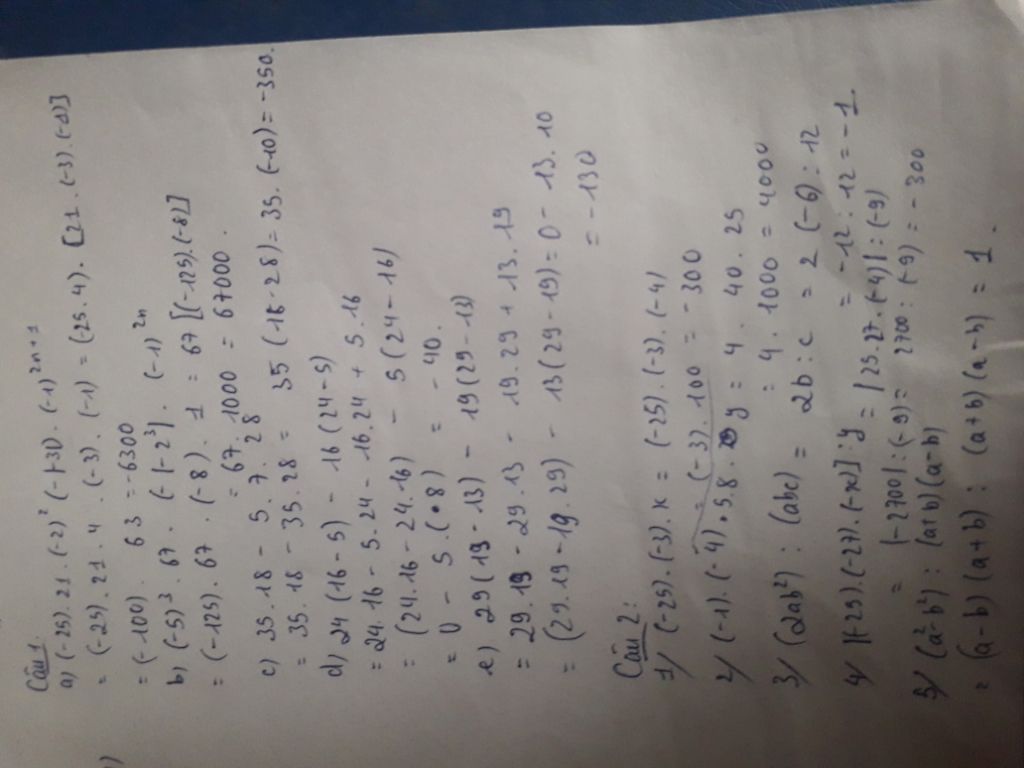 Câu 1.
a) (-25). 21. (-2)² (-|-3|). (-1)²ⁿ⁺¹
= (-25). 21. 4. (-3). (-1) = (25.4). [21. (-3). (-1)]
= (-100). 63 = -6300
b) (-5)³. 67. (-|-2³|). (-1)²ⁿ
= (-125). 67. (-8). 1 = 67 [(-125).(-8)]
= 67. 1000 = 67000.
c) 35. 18 - 5. 7. 28
= 35. 18 - 35. 28 = 35 (18 - 28) = 35. (-10) = -350.
d) 24 (16 - 5) - 16 (24 - 5)
= 24. 16 - 5. 24 - 16. 24 + 5. 16
= (24. 16 - 24. 16) - 5 (24 - 16)
= 0 - 5. (8) = - 40.
e) 29 (19 - 13) - 19 (29 - 13)
= 29. 19 - 29. 13 - 19. 29 + 13. 19
= (29. 19 - 19. 29) - 13 (29 - 19) = 0 - 13. 10
= - 130
Câu 2:
1/ (-25). (-3). x = (-25). (-3). (-4)
= (-3). 100 = - 300
2/ (-1). (-4). 5. 8. y = 4. 40. 25
= 4. 1000 = 4000
3/ (2ab²) : (abc) = 2b : c = 2 (-6) : 12
= -12 : 12 = - 1
4/ [(-25). (-27). (-x)] : y = [25. 27. (-4)] : (-9)
= [-2700] : (-9) = 2700 : (-9) = - 300
5/ (a² - b²) : (a+b) (a-b)
= (a-b) (a+b) : (a+b) (a-b) = 1.